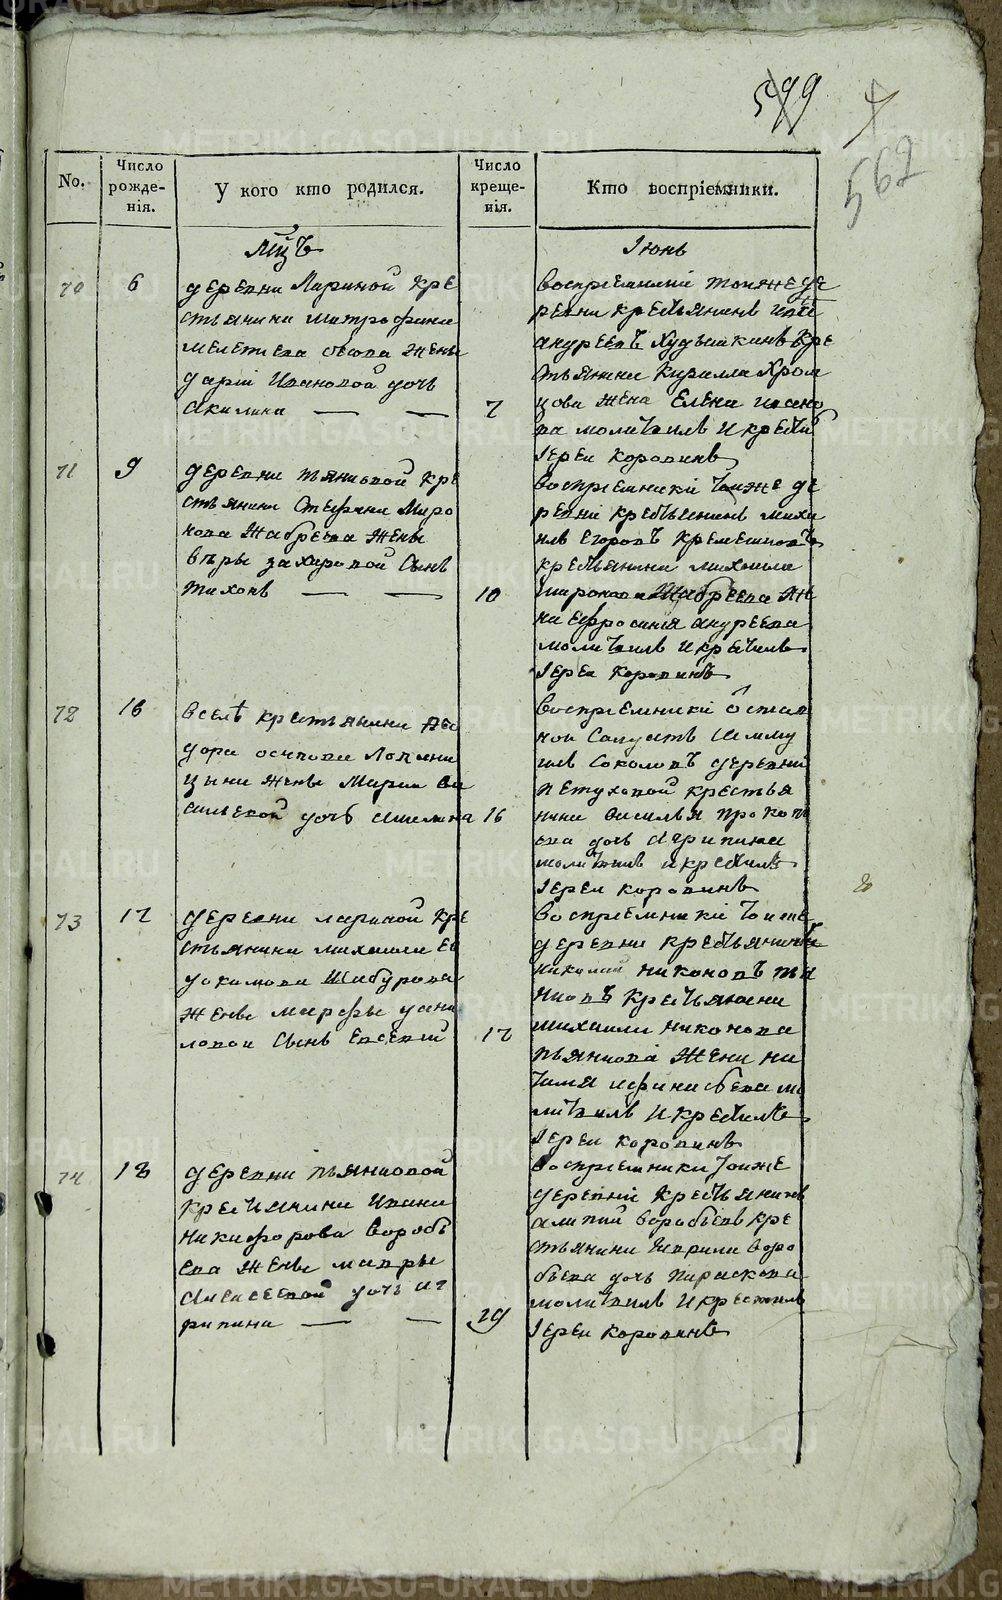 599
562
No.
Число рожде-нія.
У кого кто родился.
Число креще-нія.
Кто воспріемники.
Мцъ
Іюнь
70
6
деревни Лариной кре
стьянина Митрофана
жены
дарьи Ивановой дочь
Акилина
7
воспріемники тоижеде
ревни крестьянинъ
андреевъ Худышкинъ кре
стьянина Кирилла Хром
цова жена Елена ивано
ва молитвилъ и крестилъ
Іереи Коровинъ
71
9
деревни пьянковой кре
стьянина Стефана Миро
нова Жабреева жены
вѣры захаровой Сынъ
тихонъ
10
воспріемники тоиже де
ревни крестьянинъ миха
илъ егоровъ
крестьянина михаила
миронова Жабреева же
на ефросинія андреева
молитвилъ и крестилъ
Іереи Коровинъ
72
16
вселѣ крестьянина Ѳео
дора осипова
цына жены Марии ва
сильевой дочь
16
воспріемники отстав
нои
илъ Соколовъ деревни
петуховой крестья
нина василья прокопь
ева дочь Агрипина
молитвилъ и крестилъ
Іереи Коровинъ
73
17
деревни лариной кре
стьянина михаила ев
докимова Шабурова
жены марфы дани
ловои Сынъ Евсевий
17
воспріемники тоиже
деревни крестьянинъ
николай никоновъ пья
нковъ крестьянина
михаила никонова
пьянкова жена на
талия афанасьева мо
литвилъ и крестилъ
Іереи Коровинъ
74
18
деревни пьянковой
крестьянина Ивана
никифорова Воробь
ева жены мавры
Алексеевой дочь аг
рипина
19
воспріемники тоиже
деревни крестьянинъ
алипий воробьевъ кре
стьянина гаврила воро
бьева дочь параскева
молитвилъ и крестилъ
Іереи Коровинъ
METRIKI.GASO-URAL.RU